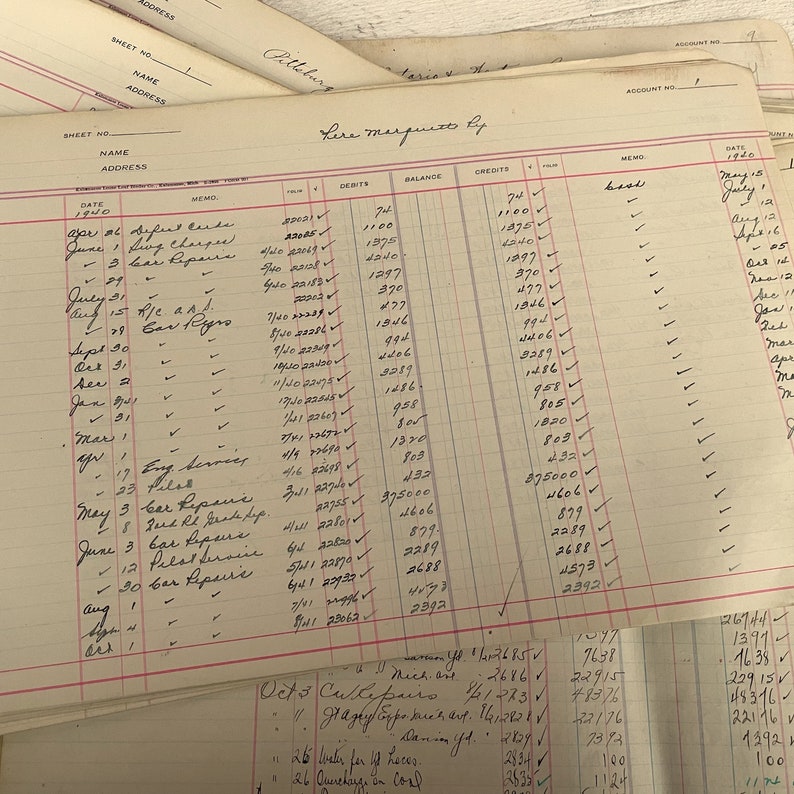 ACCOUNT NO. 9
ADDRESS
SHEET NO. 1
NAME
ADDRESS
Pittsburg
SHEET NO.
ACCOUNT NO. 1
NAME
Pere Marquette Ry
ADDRESS
DATE MEMO. FOLIO √ DEBITS BALANCE CREDITS √ FOLIO MEMO. DATE
1940 1940
Apr 26 Defect Cards 22021 ✓ 74 74 ✓ Cash May 15
June 1 Swg Charges 22085 ✓ 1100 1100 ✓ ✓ July 1
✓ 3 Car Repairs 4/40 22069 ✓ 1375 1375 ✓ ✓ ✓ 12
✓ 29 ✓ ✓ 5/40 22128 ✓ 4240 4240 ✓ ✓ Aug 12
July 31 ✓ ✓ 6/40 22183 ✓ 1297 1297 ✓ ✓ Sept 16
Aug 15 R/C 22202 ✓ 370 370 ✓ ✓ ✓ 25
✓ 29 Car Rprs 7/40 22239 ✓ 477 477 ✓ ✓ Oct 14
Sept 30 ✓ ✓ 8/40 22286 ✓ 1346 1346 ✓ ✓ Nov 12
Oct 31 ✓ ✓ 9/40 22349 ✓ 994 994 ✓ ✓ Dec 11
Dec 2 ✓ ✓ 10/40 22420 ✓ 4406 4406 ✓ ✓ Jan
Jan 3/41 ✓ ✓ 11/40 22475 ✓ 3289 3289 ✓ ✓ Feb
✓ 31 ✓ ✓ 12/40 22545 ✓ 1486 1486 ✓ ✓ Mar
Mar 1 ✓ ✓ 1/41 22607 ✓ 958 958 ✓ ✓ Apr
1 ✓ ✓ 2/41 22672 ✓ 805 805 ✓ ✓ Ma
✓ 17 Eng. Service 4/9 22690 ✓ 1320 1320 ✓ ✓ M
✓ 23 Pilot 4/16 22698 ✓ 803 803 ✓ ✓
May 3 Car Repairs 3/41 22740 ✓ 432 432 ✓ ✓
✓ 8 Rd. Grade Sep. 22755 ✓ 375000 375000 ✓ ✓
June 3 Car Repairs 4/41 22801 ✓ 4606 4606 ✓ ✓
✓ 12 Pilot Service 6/4 22820 ✓ 879 879 ✓ ✓
✓ 30 Car Repairs 5/41 22870 ✓ 2289 2289 ✓ ✓
Aug 1 ✓ ✓ 6/41 22932 ✓ 2688 2688 ✓ ✓
Sept 4 ✓ ✓ 7/41 22996 ✓ 4573 4573 ✓ ✓
Oct 1 ✓ ✓ 8/41 23062 ✓ 2392 2392 ✓ ✓
26744 ✓
1397 1397 ✓
Yd. 2685 ✓ 7638 7638 ✓
Mich. Ave. 2686 ✓ 22915 22915 ✓
Oct 3 Cu Repairs 8/21 ✓ 48376 48376 ✓
" 11 2828 ✓ 22176 22176 ✓
" " Yd. 2829 ✓ 7392 7392 ✓
" 26 Water for Yd Locos. 2834 ✓ 100 100 ✓
" 26 Overcharge on Coal 2835 ✓ 1124 1124